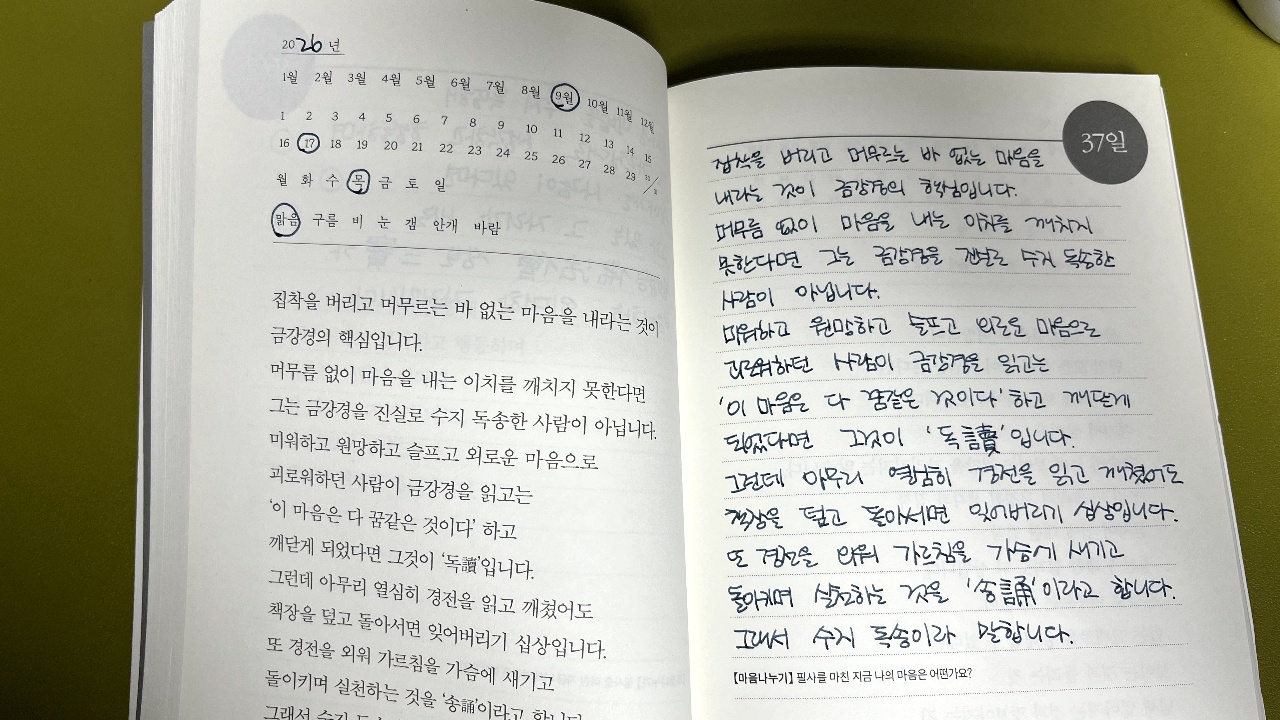 2026년
1월 2월 3월 4월 5월 6월 7월 8월 9월 10월 11월 12월
1 2 3 4 5 6 7 8 9 10 11 12 13 14 15
16 17 18 19 20 21 22 23 24 25 26 27 28 29 30/31
월 화 수 목 금 토 일
맑음 구름 비 눈 갬 안개 바람
집착을 버리고 머무르는 바 없는 마음을 내라는 것이
금강경의 핵심입니다.
머무름 없이 마음을 내는 이치를 깨치지 못한다면
그는 금강경을 진실로 수지 독송한 사람이 아닙니다.
미워하고 원망하고 슬프고 외로운 마음으로
괴로워하던 사람이 금강경을 읽고는
‘이 마음은 다 꿈같은 것이다’ 하고
깨닫게 되었다면 그것이 ‘독讀’입니다.
그런데 아무리 열심히 경전을 읽고 깨쳤어도
책장을 덮고 돌아서면 잊어버리기 십상입니다.
또 경전을 외워 가르침을 가슴에 새기고
돌이키며 실천하는 것을 ‘송誦’이라고 합니다.
그래서 수지
37일
집착을 버리고 머무르는 바 없는 마음을
내라는 것이 금강경의 핵심입니다.
머무름 없이 마음을 내는 이치를 깨치지
못한다면 그는 금강경을 진실로 수지 독송한
사람이 아닙니다.
미워하고 원망하고 슬프고 외로운 마음으로
괴로워하던 사람이 금강경을 읽고는
‘이 마음은 다 꿈같은 것이다’ 하고 깨닫게
되었다면 그것이 ‘독讀’입니다.
그런데 아무리 열심히 경전을 읽고 깨쳤어도
책장을 덮고 돌아서면 잊어버리기 십상입니다.
또 경전을 외워 가르침을 가슴에 새기고
돌이키며 실천하는 것을 ‘송誦’이라고 합니다.
그래서 수지 독송이라 말합니다.
[마음나누기] 필사를 마친 지금 나의 마음은 어떤가요?